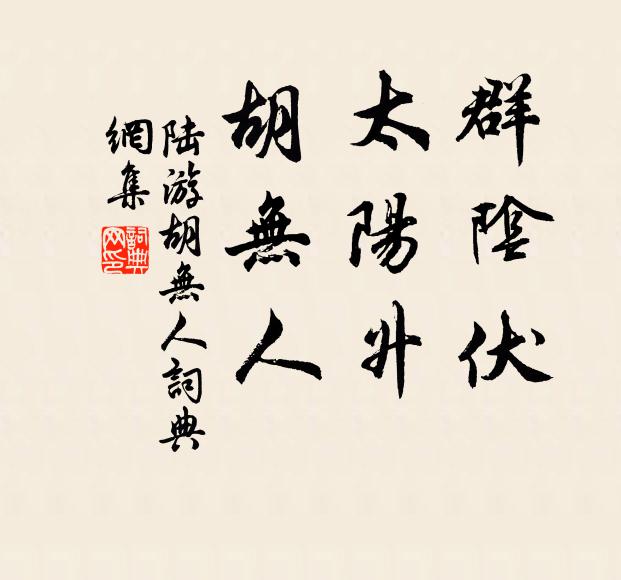 群陰伏
太陽升
胡無人
陆游胡無人詞典
網集
詞典
网印